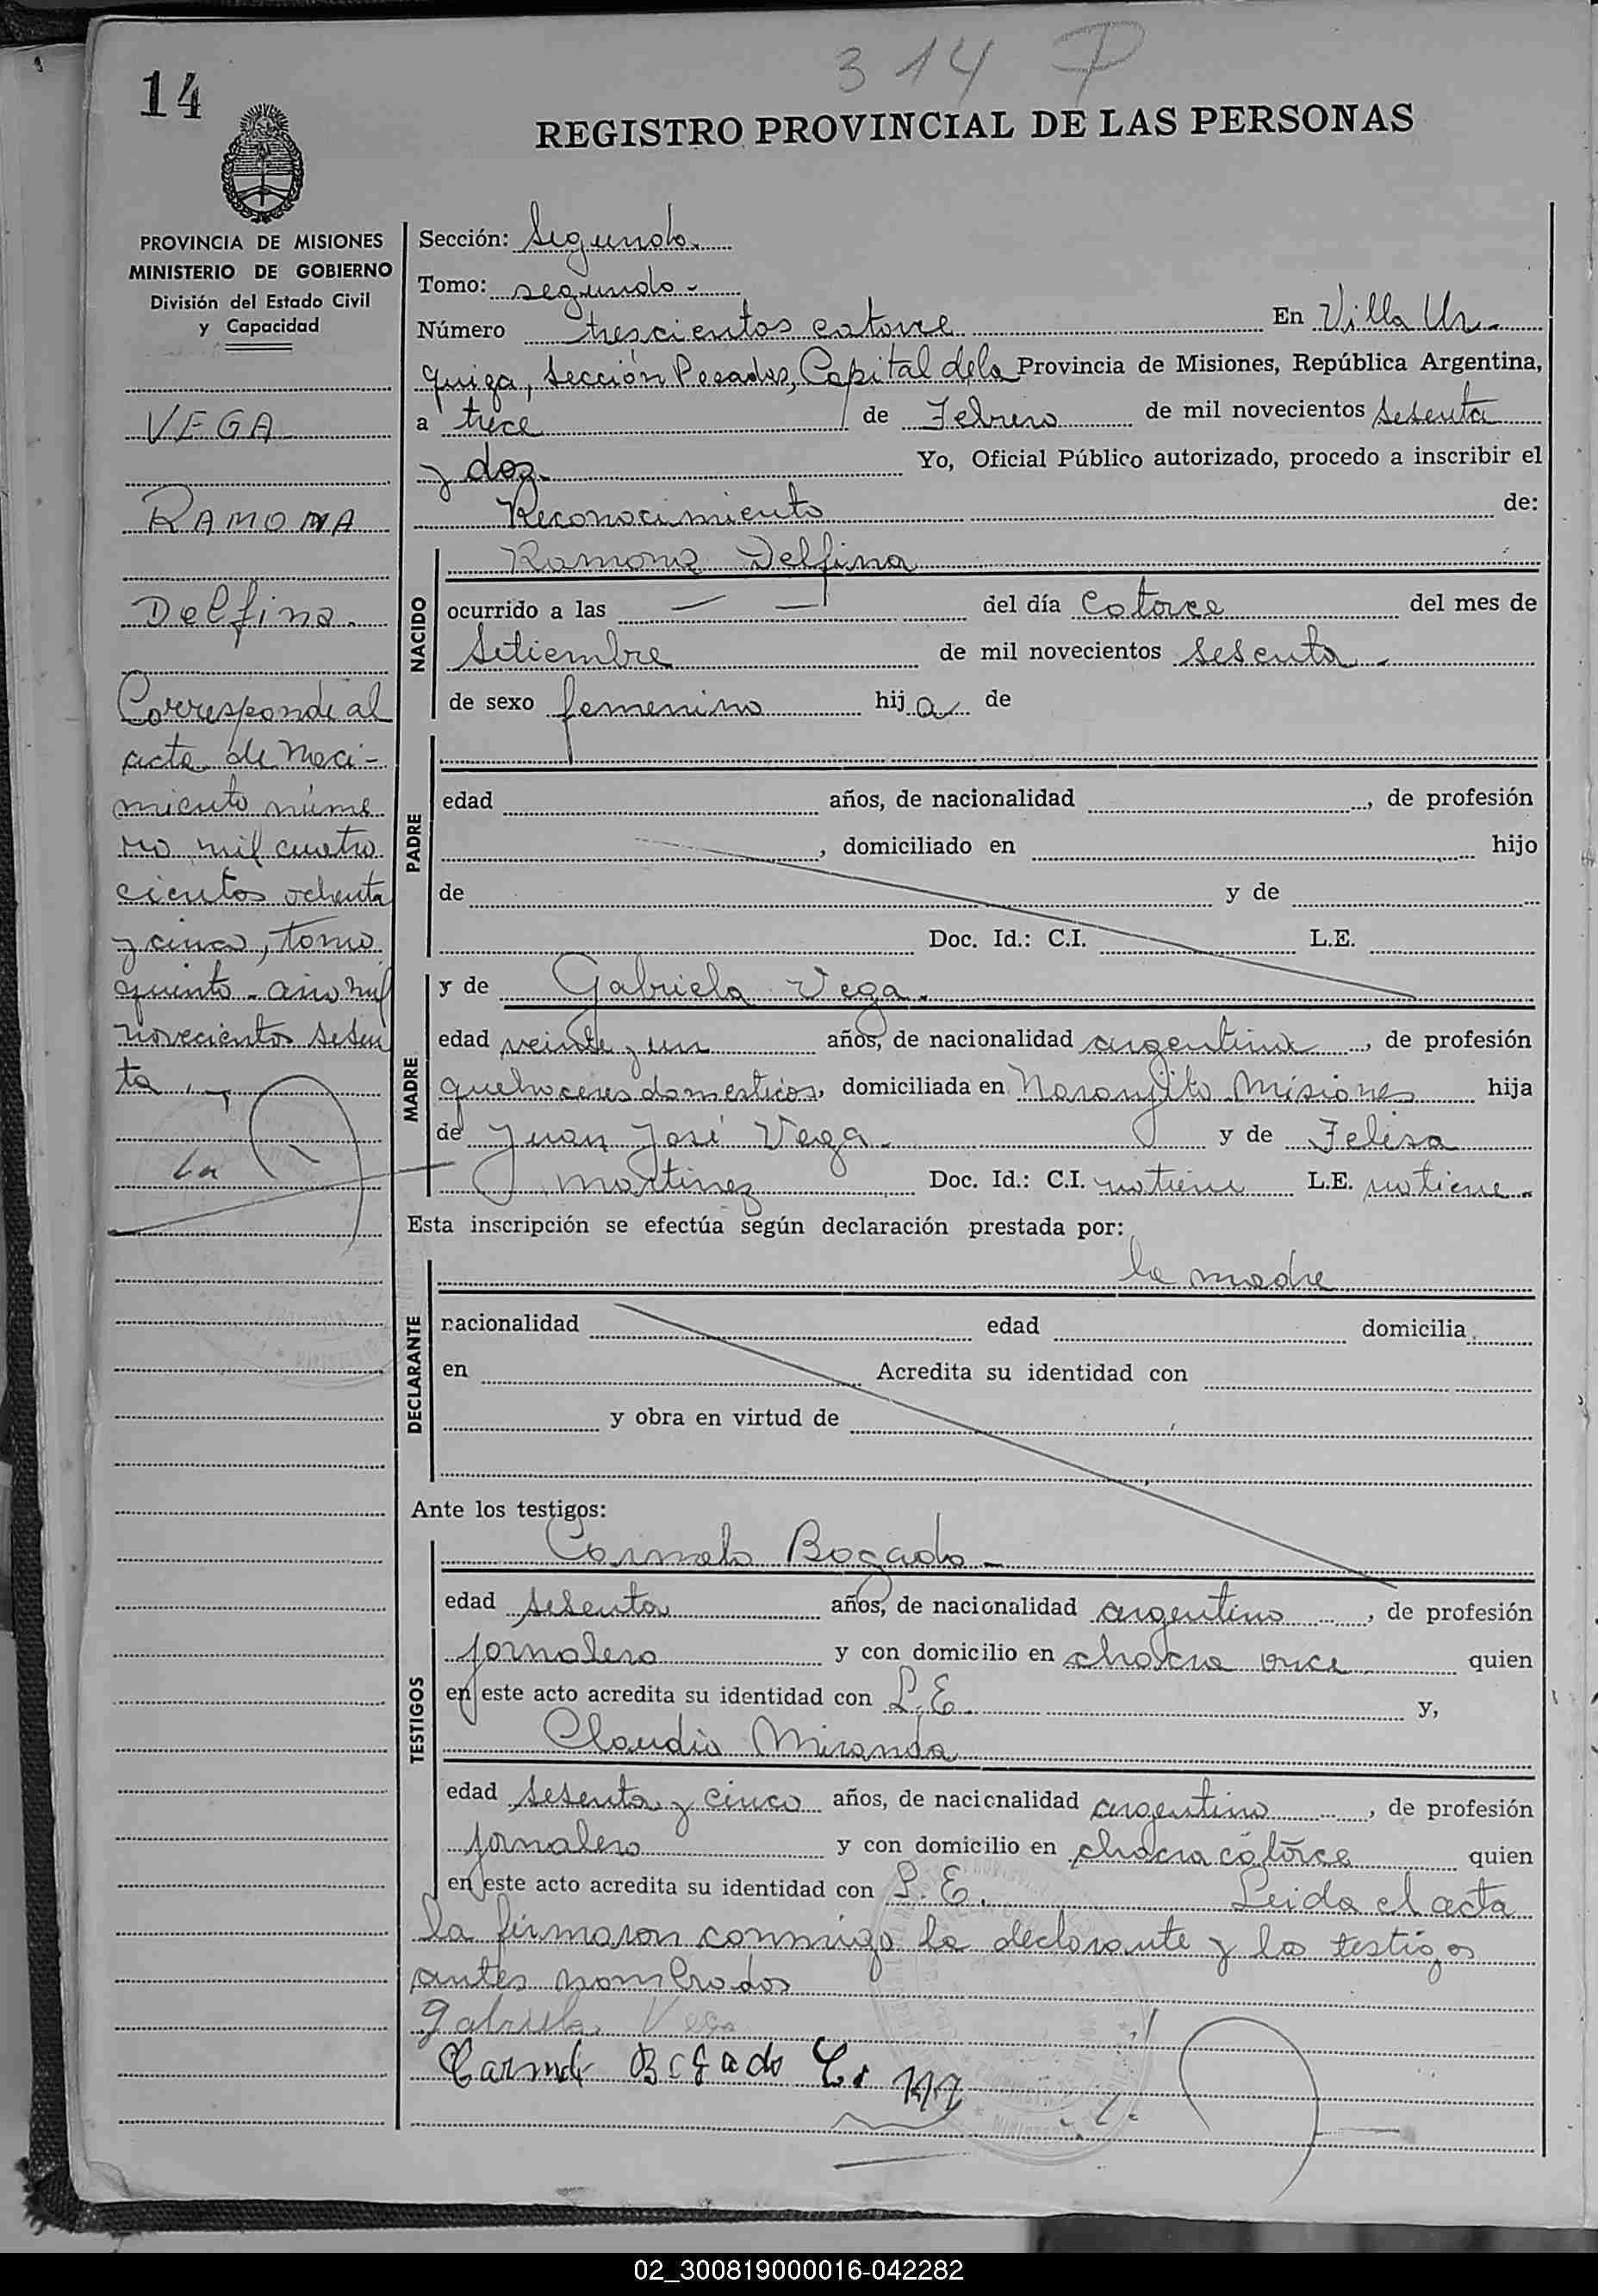 314 P
14
REGISTRO PROVINCIAL DE LAS PERSONAS
PROVINCIA DE MISIONES
MINISTERIO DE GOBIERNO
División del Estado Civil
y Capacidad
VEGA
RAMONA
Delfina.
Corresponde al
acta de naci-
miento núme
ro mil cuatro
cientos ochenta
y cinco, tomo
quinto - año mil
novecientos sesen
ta.-
Sección: Segundo.
Tomo: segundo -
Número trescientos catorce En Villa Ur-
quiza, Sección Posadas, Capital de la Provincia de Misiones, República Argentina,
a trece de Febrero de mil novecientos setenta
y dos. Yo, Oficial Público autorizado, procedo a inscribir el
Reconocimiento de:
NACIDO
Ramona Delfina
ocurrido a las — — del día Catorce del mes de
Setiembre de mil novecientos sesenta -
de sexo femenino hija de
PADRE
edad años, de nacionalidad , de profesión
, domiciliado en hijo
de y de
Doc. Id.: C.I. L.E.
MADRE
y de Gabriela Vega.
edad veinte y un años, de nacionalidad argentina , de profesión
quehaceres domesticos, domiciliada en Naranjito Misiones hija
de Juan José Vega. y de Felisa
Martinez Doc. Id.: C.I. no tiene L.E. no tiene.
Esta inscripción se efectúa según declaración prestada por:
DECLARANTE
la madre
nacionalidad edad domicilia
en Acredita su identidad con
y obra en virtud de
Ante los testigos:
TESTIGOS
Carmelo Bogado -
edad sesenta años, de nacionalidad argentino , de profesión
jornalero y con domicilio en chacra once quien
en este acto acredita su identidad con L.E. y,
Claudio Miranda
edad sesenta y cinco años, de nacionalidad argentino , de profesión
jornalero y con domicilio en chacra catorce quien
en este acto acredita su identidad con L.E. Leida el acta
la firmaron conmigo la declarante y los testigos
antes nombrados
Gabriela Vega
Carmelo Bogado
02_300819000016-042282